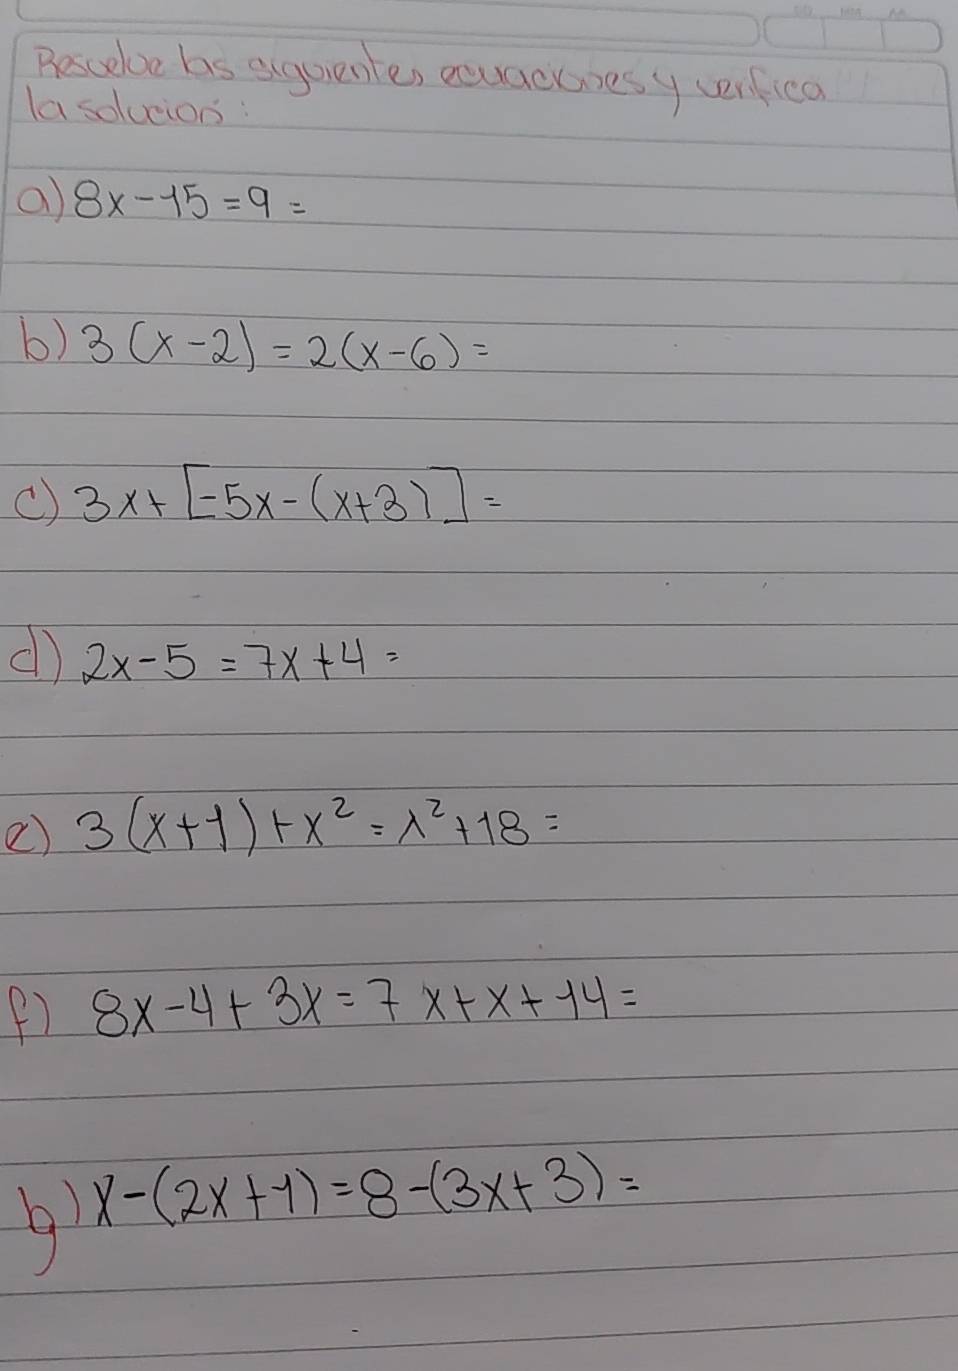 Resuelve las siguientes ecuaciones y verifica
la solucion:
a) 8x-15=9=
b) 3(x-2)=2(x-6)=
c) 3x+[-5x-(x+3)]=
d) 2x-5=7x+4=
e) 3(x+1)+x²=x²+18=
f) 8x-4+3x=7x+x+14=
g) x-(2x+1)=8-(3x+3)=